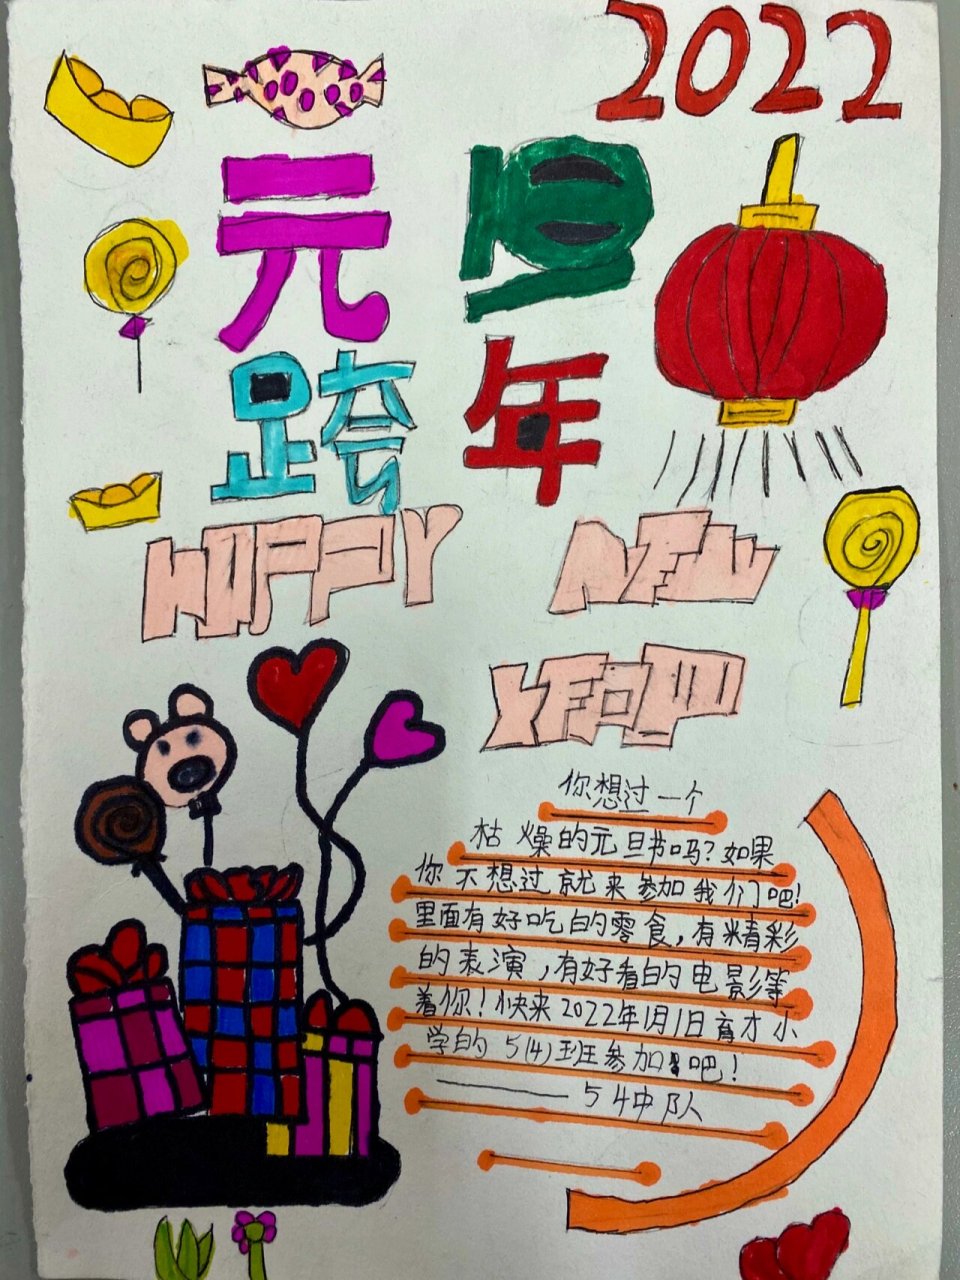 2022
元旦
跨年
HAPPY NEW
YEAR
你想过一个
枯燥的元旦节吗?如果
你不想过就来参加我们吧!
里面有好吃的零食,有精彩
的表演,有好看的电影等
着你!快来2022年1月1日育才小
学的5(4)班参加吧!
——54中队